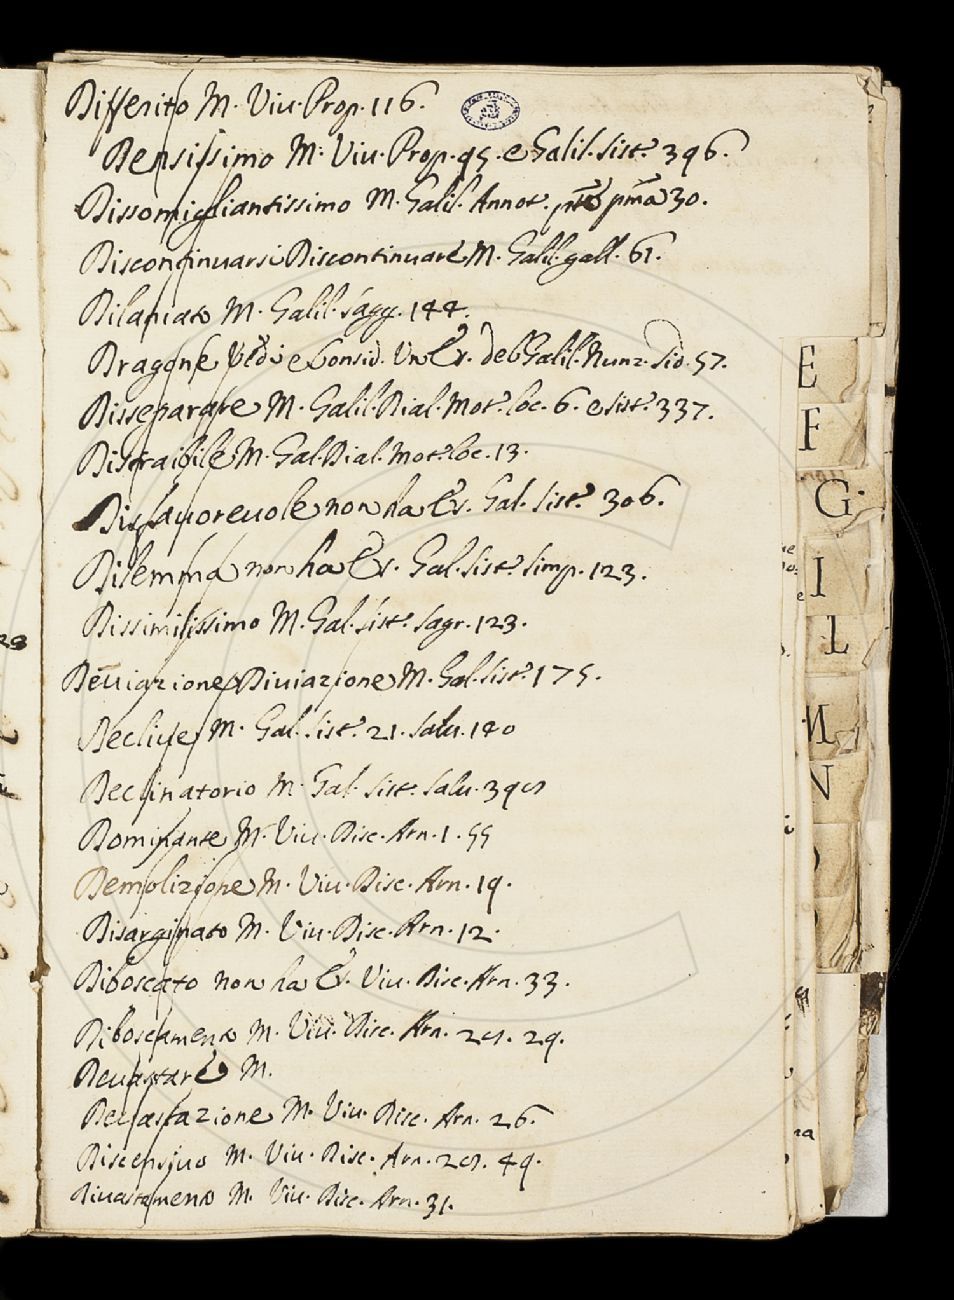 Differito M. Viu. Prop. 116.
Densissimo M. Viu. Prop. 95. e Galil. sist. 396.
Dissomigliantissimo M. Galil. Annot. pma 30.
Discontinuarsi Discontinuare M. Galil. gall. 61.
Dilaniato M. Galil. sagg. 144.
Dragone Vedi e Consid. Un Es. del Galil. Nunz. Sid. 57.
Disseparare M. Galil. Dial. Mot. loc. 6. e sist. 337.
Distraibile M. Gal. Dial. Mot. loc. 13.
Disfauoreuole non ha Es. Gal. sist. 306.
Dilemma non ha Es. Gal. sist. simp. 123.
Dissimilissimo M. Gal. sist. sagr. 123.
Deuiazione Diuiazione M. Gal. sist. 175.
Decliue M. Gal. sist. 21. salu. 140
Declinatorio M. Gal. sist. salu.
Dominante M. Viu. Disc. Arn. 1. 55
Demolizione M. Viu. Disc. Arn. 19.
Disarginato M. Viu. Disc. Arn. 12.
Diboscato non ha E. Viu. Disc. Arn. 33.
Diboscamento M. Viu. Disc. Arn. 29.
Deuastare M.
Deuastazione M. Viu. Disc. Arn. 26.
Discensiuo M. Viu. Disc. Arn. 49.
Diuastamento M. Viu. Disc. Arn. 31.
E
F
G
I
L
M
N